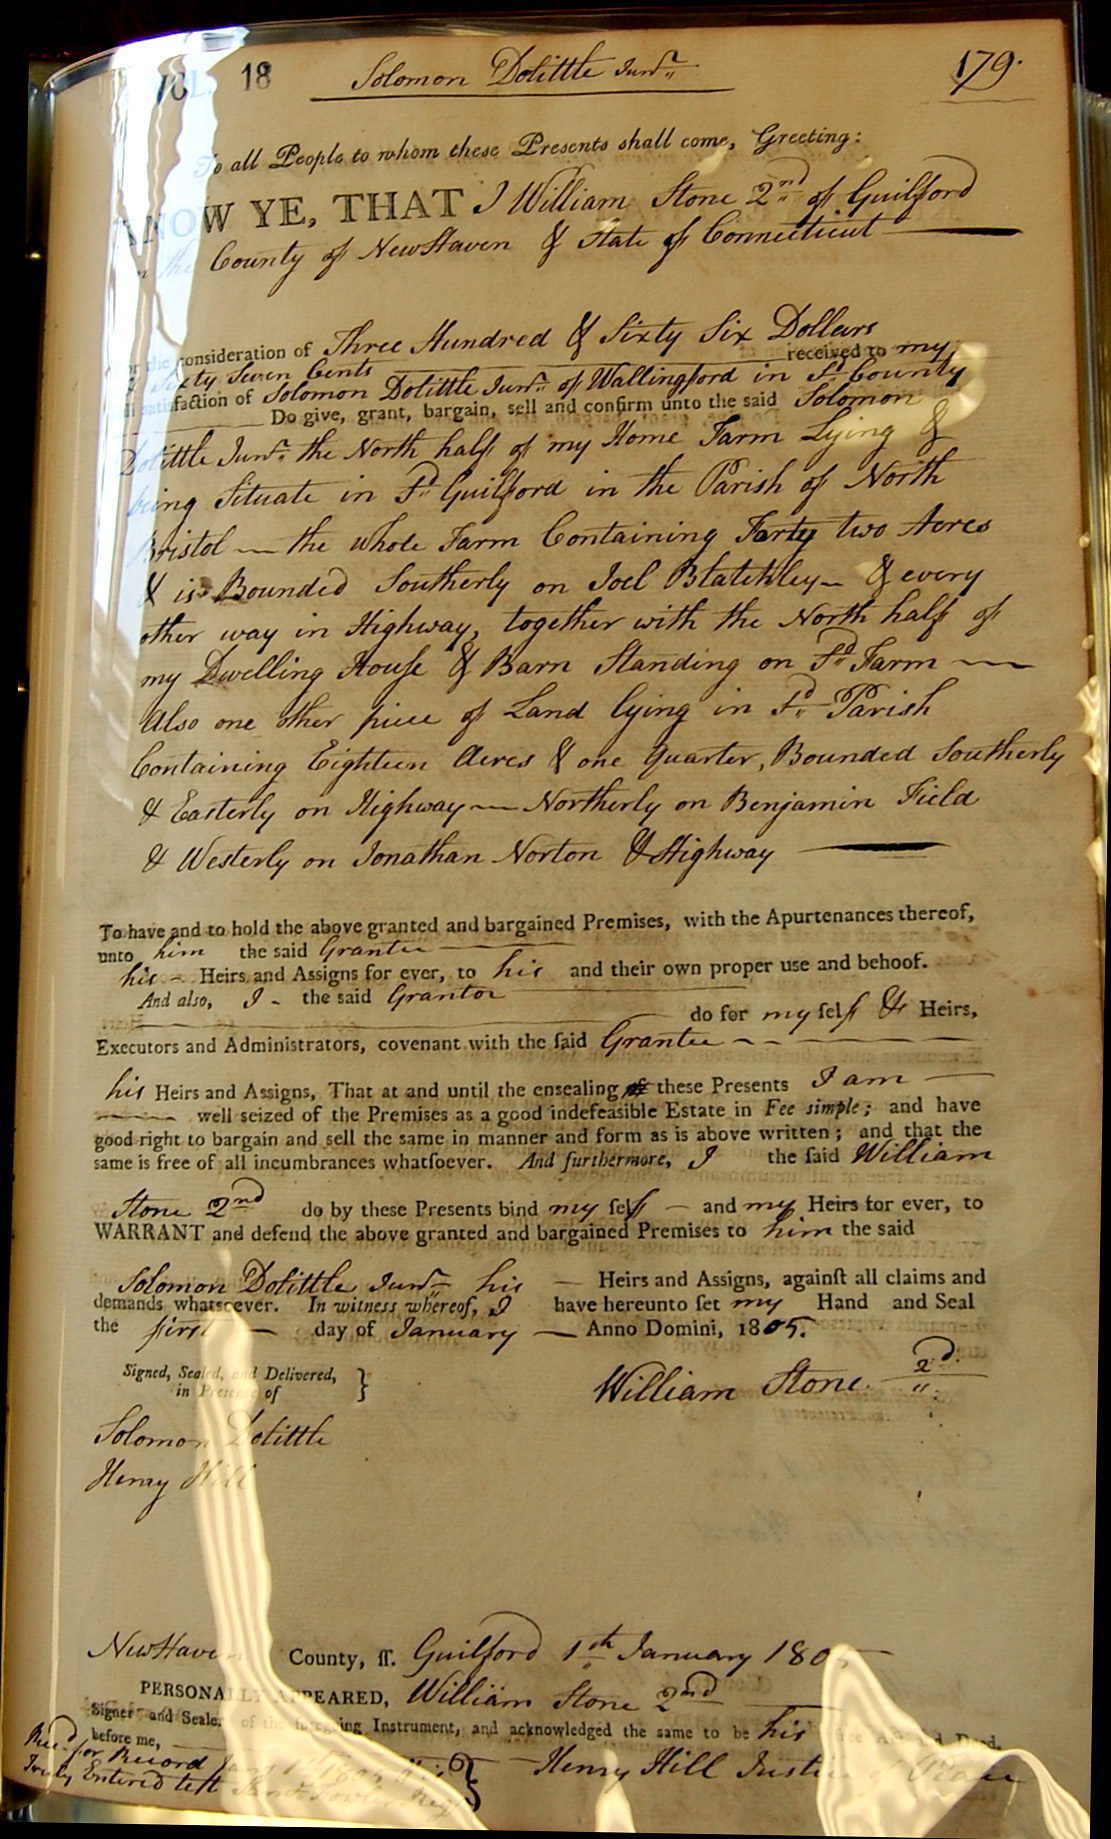 VOL 18 Solomon Dolittle Junr. 179.
To all People to whom these Presents shall come, Greeting:
KNOW YE, THAT I William Stone 2nd of Guilford
in the County of NewHaven & State of Connecticut
for the consideration of Three Hundred & Sixty Six Dollars
& Sixty Seven Cents received to my
full satisfaction of Solomon Dolittle Junr. of Wallingford in Sd. County
Do give, grant, bargain, sell and confirm unto the said Solomon
Dolittle Junr. the North half of my Home Farm Lying &
being Situate in Sd. Guilford in the Parish of North
Bristol — the whole Farm Containing Forty two Acres
& is Bounded Southerly on Joel Blatchley — & every
other way in Highway, together with the North half of
my Dwelling Houſe & Barn Standing on Sd. Farm —
Also one other piece of Land lying in Sd. Parish
Containing Eighteen Acres & one Quarter, Bounded Southerly
& Easterly on Highway — Northerly on Benjamin Field
& Westerly on Jonathan Norton & Highway —
To have and to hold the above granted and bargained Premises, with the Apurtenances thereof,
unto him the said Grantee
his – Heirs and Assigns for ever, to his and their own proper use and behoof.
And also, I – the said Grantor
do for my ſelf & Heirs,
Executors and Administrators, covenant with the ſaid Grantee
his Heirs and Assigns, That at and until the ensealing of these Presents I am
well seized of the Premises as a good indefeasible Estate in Fee simple; and have
good right to bargain and sell the same in manner and form as is above written; and that the
same is free of all incumbrances whatſoever. And furthermore, I the ſaid William
Stone 2nd do by these Presents bind my ſelf – and my Heirs for ever, to
WARRANT and defend the above granted and bargained Premises to him the said
Solomon Dolittle Junr. his — Heirs and Assigns, againſt all claims and
demands whatsoever. In witness whereof, I have hereunto ſet my Hand and Seal
the first — day of January — Anno Domini, 1805.
Signed, Sealed, and Delivered,
in Presence of }
William Stone 2d.
Solomon Dolittle
Henry Hill
NewHaven County, ſſ. Guilford 1th January 1805
PERSONALLY APPEARED, William Stone 2nd
Signer and Sealer of the foregoing Instrument, and acknowledged the same to be his free Act and Deed,
before me, Henry Hill Justice of Peace
Recd. for Record
Truly Entered test